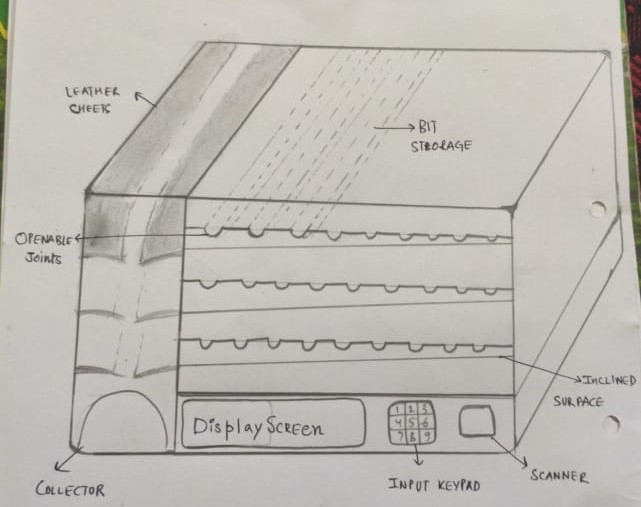 LEATHER
SHEETS
BIT
STORAGE
OPENABLE
Joints
INCLINED
SURFACE
Display Screen
1 2 3
4 5 6
7 8 9
SCANNER
INPUT KEYPAD
COLLECTOR